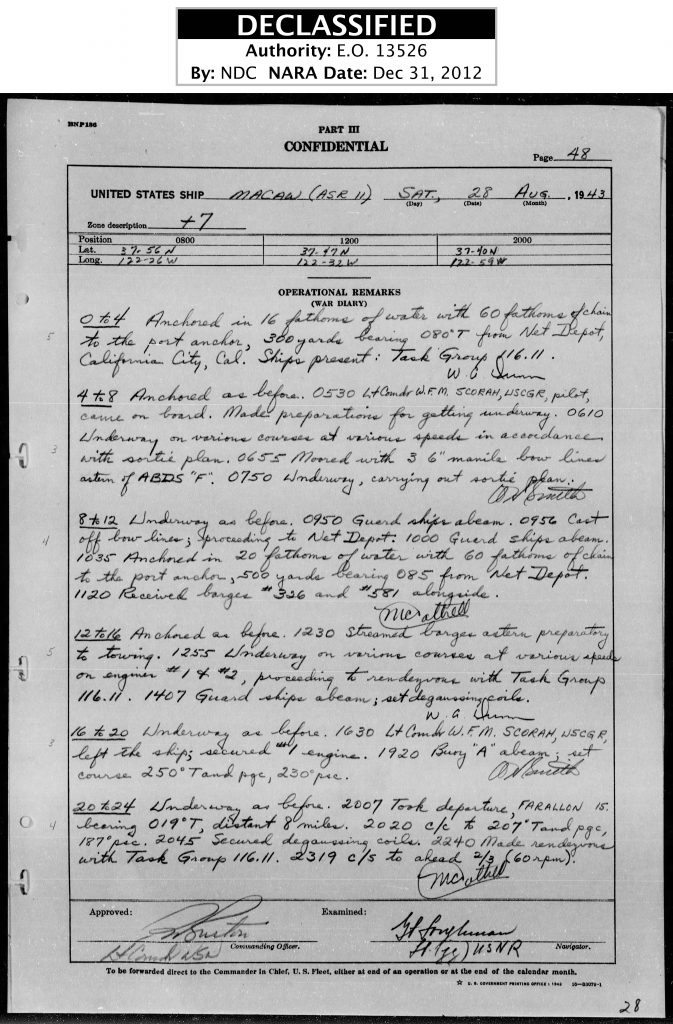 DECLASSIFIED
Authority: E.O. 13526
By: NDC NARA Date: Dec 31, 2012
BNP186
PART III
CONFIDENTIAL
Page 48
UNITED STATES SHIP MACAW (ASR 11) SAT., 28 AUG., 1943
(Day) (Date) (Month)
Zone description +7
Position 0800 1200 2000
Lat. 37-56 N 37-47 N 37-40 N
Long. 122-26 W 122-32 W 122-59 W
OPERATIONAL REMARKS
(WAR DIARY)
0 to 4 Anchored in 16 fathoms of water with 60 fathoms of chain
5 to the port anchor, 300 yards bearing 080°T from Net Depot,
California City, Cal. Ships present: Task Group 116.11.
W. A. Dunn
4 to 8 Anchored as before. 0530 Lt Comdr W.F.M. SCORAH, USCGR, pilot,
came on board. Made preparations for getting underway. 0610
Underway on various courses at various speeds in accordance
3 with sortie plan. 0655 Moored with 3 6" manila bow lines
astern of ABDS "F". 0750 Underway, carrying out sortie plan.
Smith
8 to 12 Underway as before. 0950 Guard ships abeam. 0956 Cast
4 off bow lines; proceeding to Net Depot. 1000 Guard ships abeam.
1035 Anchored in 20 fathoms of water with 60 fathoms of chain
to the port anchor, 500 yards bearing 085 from Net Depot.
1120 Received barges #326 and #581 alongside.
12 to 16 Anchored as before. 1230 Streamed barges astern preparatory
5 to towing. 1255 Underway on various courses at various speeds
on engines #1 & #2, proceeding to rendezvous with Task Group
116.11. 1407 Guard ships abeam; set degaussing coils.
W. A. Dunn
16 to 20 Underway as before. 1630 Lt Comdr W.F.M. SCORAH, USCGR,
3 left the ship; secured #1 engine. 1920 Buoy "A" abeam; set
course 250°T and pgc, 230° psc.
Smith
20 to 24 Underway as before. 2007 Took departure, FARALLON IS.
4 bearing 019°T, distant 8 miles. 2020 c/c to 207°T and pgc,
187° psc. 2045 Secured degaussing coils. 2240 Made rendezvous
with Task Group 116.11. 2319 c/s to ahead 2/3 (60 rpm).
Approved: Examined:
Burton
Lt Comdr USN Commanding Officer. Lt. (jg) USNR Navigator.
To be forwarded direct to the Commander in Chief, U. S. Fleet, either at end of an operation or at the end of the calendar month.
☆ U. S. GOVERNMENT PRINTING OFFICE : 1943
28